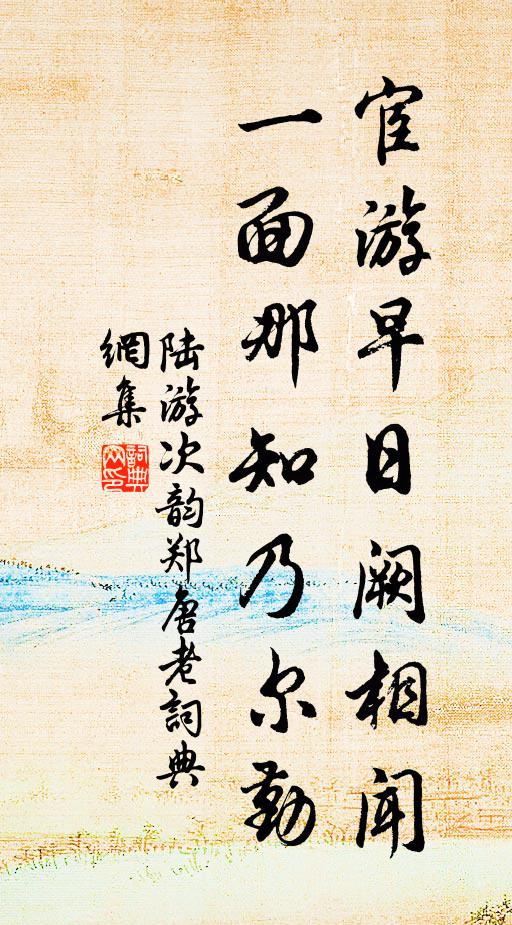 宦游早日阙相闻
一面那知乃尔勤
陆游次韵郑唐老詞典
網集
詞典
网印